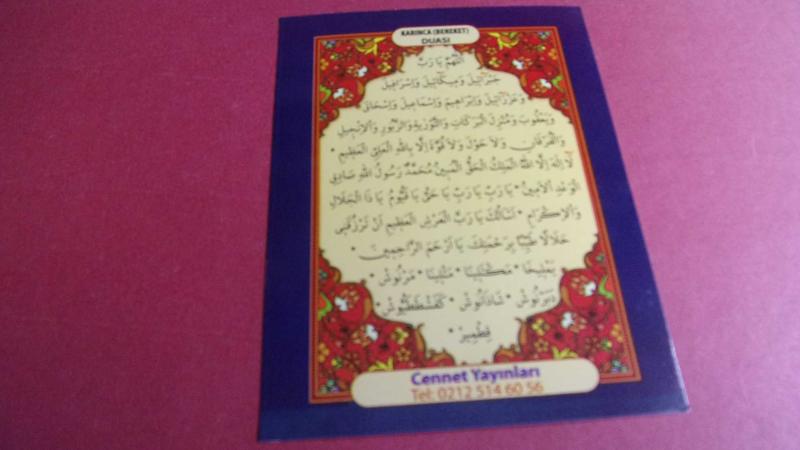 KARINCA (BEREKET)
DUASI
اَللّٰهُمَّ يَا رَبَّ
جَبْرَائِيلَ وَمِيكَائِيلَ وَاِسْرَافِيلَ
وَعَزْرَائِيلَ وَاِبْرَاهِيمَ وَاِسْمَاعِيلَ وَاِسْحَاقَ
وَيَعْقُوبَ وَمُنْزِلَ الْبَرَكَاتِ وَالتَّوْرٰيةِ وَالزَّبُورِ وَالْاِنْجِيلِ
وَالْفُرْقَانِ وَلَا حَوْلَ وَلَا قُوَّةَ اِلَّا بِاللّٰهِ الْعَلِيِّ الْعَظِيمِ *
لَا اِلٰهَ اِلَّا اللّٰهُ الْمَلِكُ الْحَقُّ الْمُبِينُ مُحَمَّدٌ رَسُولُ اللّٰهِ صَادِقُ
الْوَعْدِ الْاَمِينُ * يَا رَبِّ يَا رَبِّ يَا حَيُّ يَا قَيُّومُ يَا ذَا الْجَلَالِ
وَالْاِكْرَامِ * اَسْأَلُكَ يَا رَبَّ الْعَرْشِ الْعَظِيمِ اَنْ تَرْزُقَنِى
حَلَالًا طَيِّبًا بِرَحْمَتِكَ يَا اَرْحَمَ الرَّاحِمِينَ *
يَمْلِيخَا * مَكْثَلِينَا * مَثْلِينَا * مَرْنُوشْ *
دَبَرْنُوشْ * شَاذَنُوشْ * كَفَشْطَطَيُوشْ *
قِطْمِيرْ *
Cennet Yayınları
Tel: 0212 514 60 56